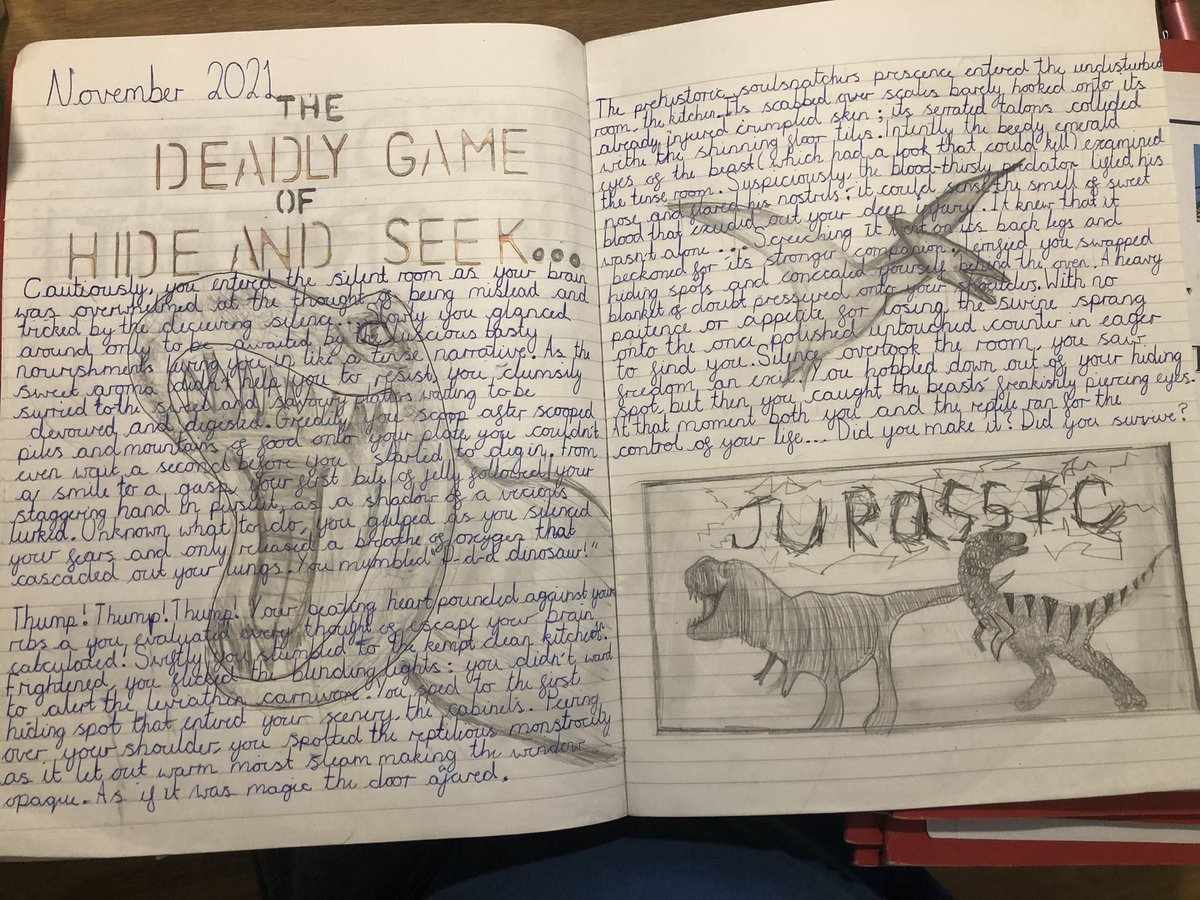 November 2021
THE
DEADLY GAME
OF
HIDE AND SEEK...
Cautiously, you entered the silent room as your brain
was overwhelmed at the thought of being mislead and
tricked by the decieving silence... slowly you glanced
around only to be awaited by the luscious tasty
nourishments luring you in like a tense narrative. As the
sweet aroma didn't help you to resist, you clumsily
surred to the sweet and savoury platters waiting to be
devoured and digested. Greedily you scoop after scooped
piles and mountains of food onto your plate, you couldn't
even wait a second before you started to dig in. From
a smile to a gasp, your first bite of jelly followed your
staggering hand in pursuit as a shadow of a vecious
lurked. Unknown what to do, you gulped as you silenced
your fears and only released a breathe of oxygen that
cascaded out your lungs. You mumbled "D-d-d dinosaur!"
Thump! Thump! Thump! Your beating heart pounded against your
ribs a you evaluated every thought of escape your brain
calculated! Swiftly you stumpled to the kempt clean kitchen.
Frightened, you flicked the blinding lights: you didn't want
to alert the leviathen carnivore. You sped to the first
hiding spot that entered your scenery, the cabinets. Peering
over your shoulder you spotted the reptilious monstrocity
as it let out warm moist steam making the window
opaque. As if it was magic the door ajared.
The prehistoric soulsnatchers prescence entered the undisturbed
room, the kitchen. Its scabbed over scales barely hooked onto its
already injured crumpled skin; its serrated talons collided
withe the shinning floor tiles. Intently the beedy emerald
eyes of the beast (which had a look that could kill) examined
the tense room. Suspiciously, the blood-thirsty predator lifted his
nose and flared his nostrils: it could sense the smell of sweet
blood that exuded out your deep injury. It knew that it
wasn't alone... Screeching it went on its back legs and
beckoned for its stronger companion. Terrified you swapped
hiding spots and concealed yourself behind the oven. A heavy
blanket of doubt pressured onto your shoulders. With no
paitence or appetite for losing the swine sprang
onto the once polished untouched counter in eager
to find you. Silence overtook the room, you saw
freedom, an exit. You hobbled down out of your hiding
spot, but then you caught the beasts freakishly piercing eyes.
At that moment both you and the reptile ran for the
control of your life.... Did you make it? Did you survive?
JURASSIC